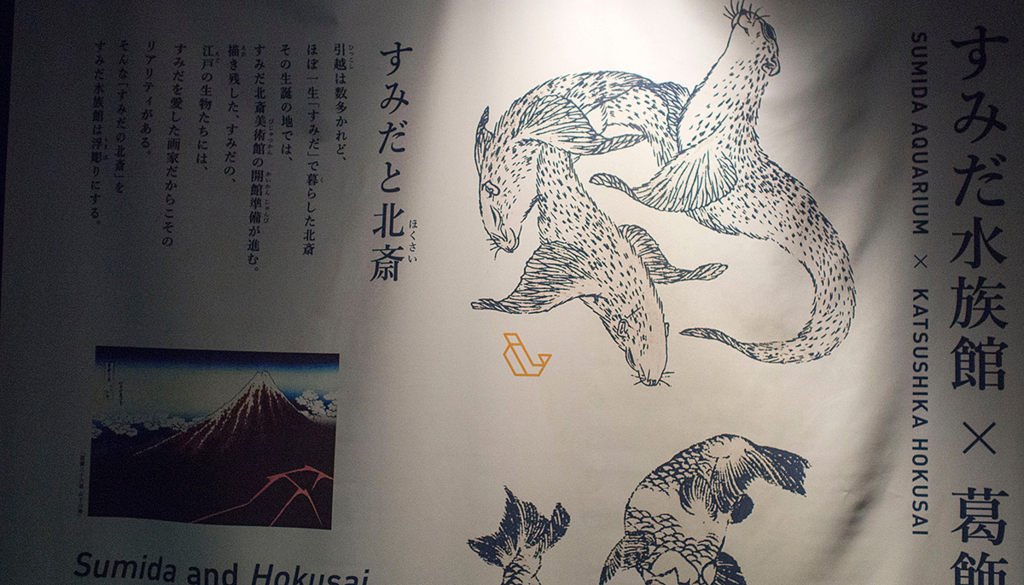 すみだ水族館 × 葛飾
SUMIDA AQUARIUM × KATSUSHIKA HOKUSAI
すみだと北斎
ほくさい
引越は数多かれど、
ほぼ一生「すみだ」で暮らした北斎
その生誕の地では、
すみだ北斎美術館の開館準備が進む。
描き残した、すみだの、
江戸の生物たちには、
すみだを愛した画家だからこその
リアリティがある。
そんな「すみだの北斎」を
すみだ水族館は浮彫りにする。
Sumida and Hokusai